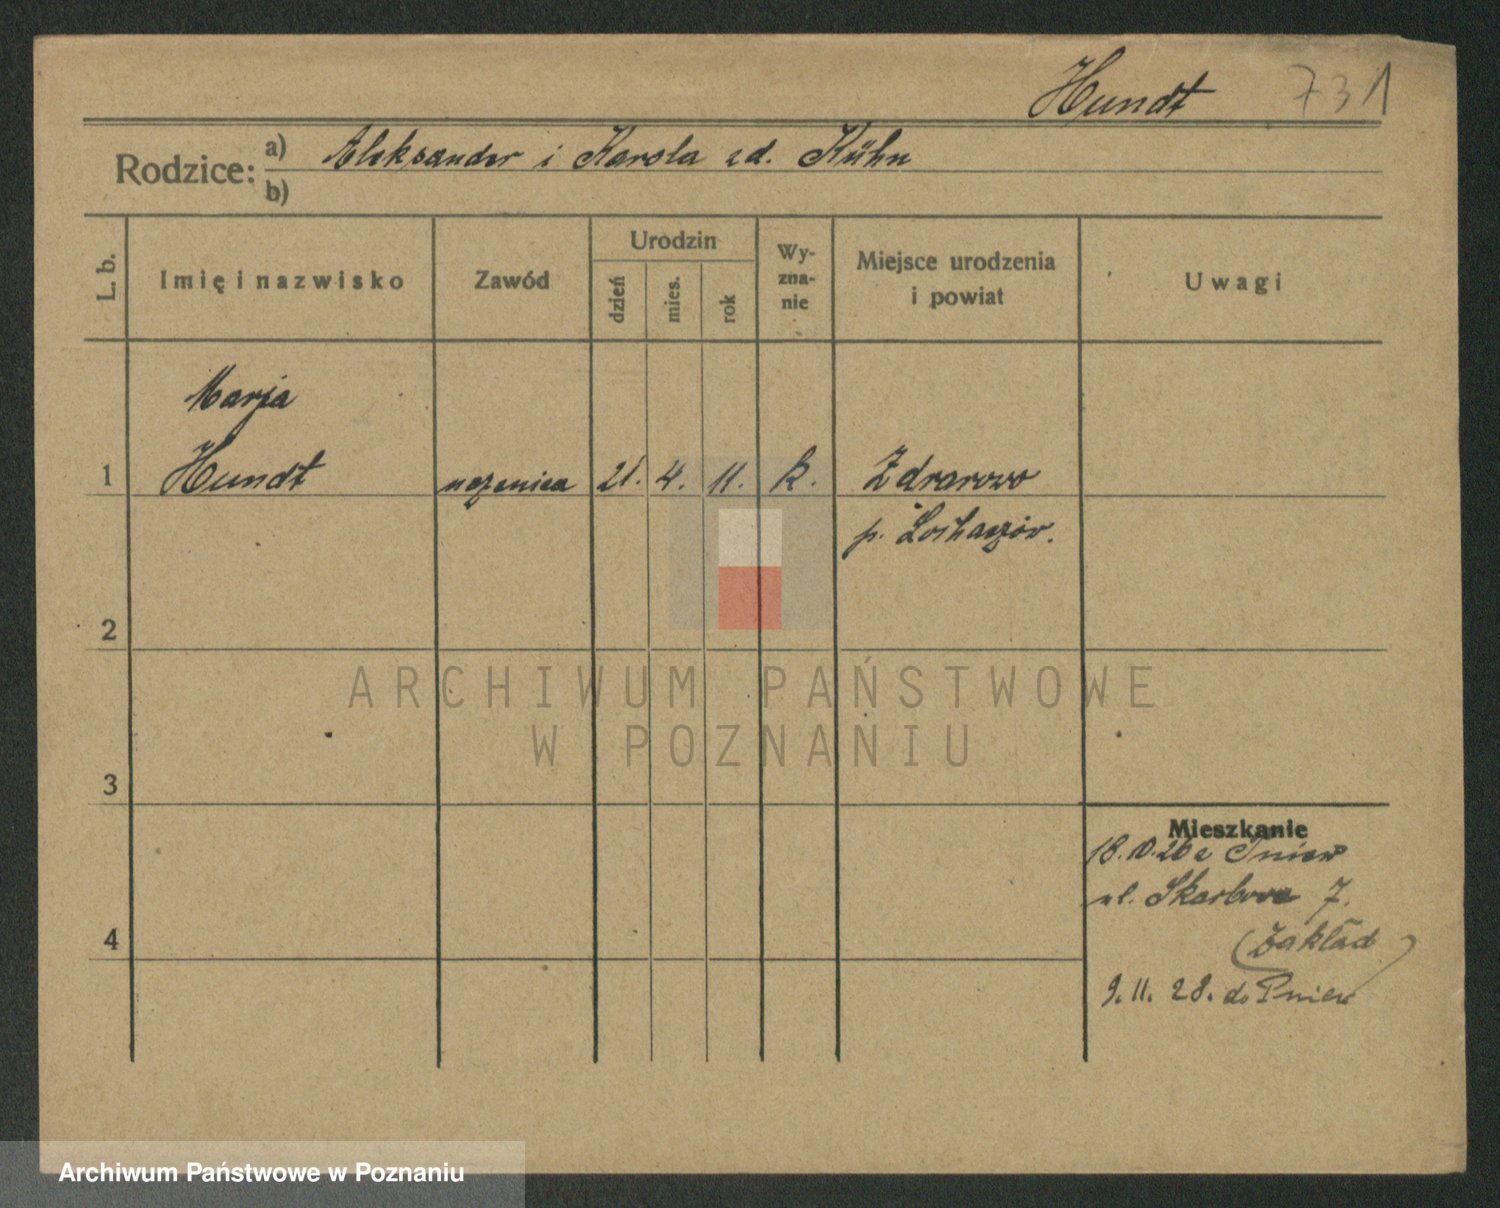 Hundt 731
Rodzice: a) Aleksander i Karola zd. Kühn
b)
L. b. Imię i nazwisko Zawód Urodzin dzień mies. rok Wy-zna-nie Miejsce urodzenia i powiat Uwagi
Marja
1 Hundt uczenica 21. 4. 11. k.
p.
2
3
4
Mieszkanie
18. 10. 26 z Pniew
ul. Skarbowa 7.
(Zakład)
9. 11. 28. do Pniew
ARCHIWUM PAŃSTWOWE
W POZNANIU
Archiwum Państwowe w Poznaniu